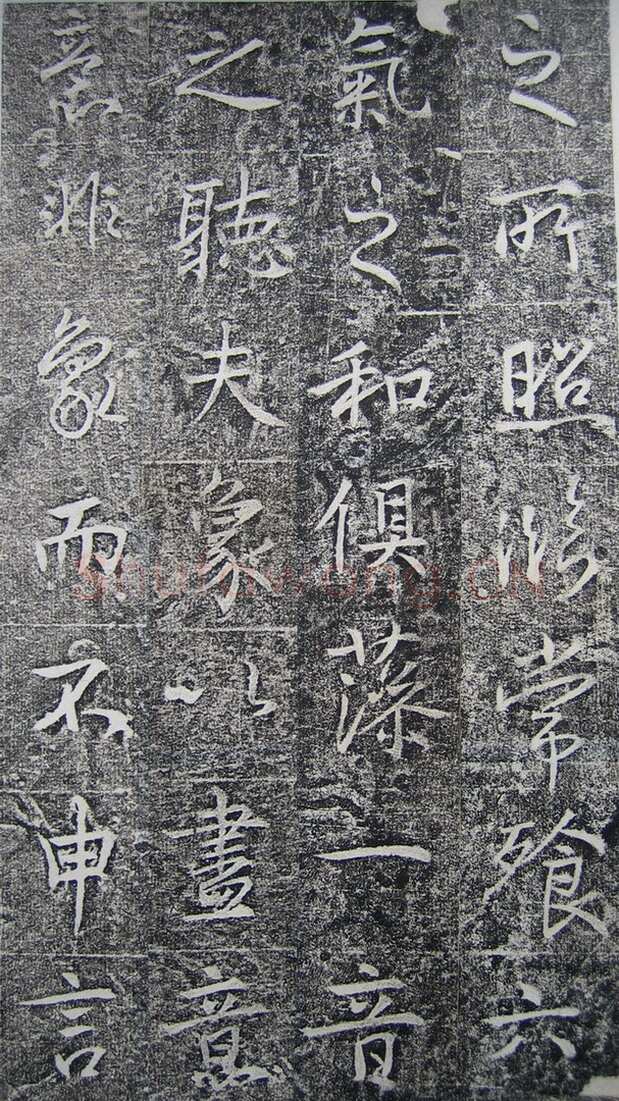 之所照常飱六
氣之和俱藻一音
之聽夫象以盡意
意非象而不申言
Shufawang.CN